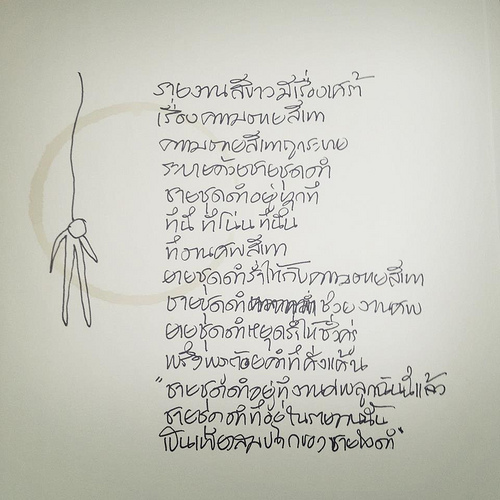 รายงานสีขาวมีเรื่องเศร้า
เรื่องความตายสีเทา
ความตายสีเทาถูกระบาย
ระบายด้วยชายชุดดำ
ชายชุดดำอยู่ทุกที่
ที่นี่ ที่โน่น ที่นั่น
ที่งานศพสีเทา
ชายชุดดำร่ำไห้กับความตายสีเทา
ชายชุดดำ ช่วยงานศพ
ชายชุดดำหยุดร่ำไห้ชั่วครู่
พร้อมถ้อยคำที่คั่งแค้น
"ชายชุดดำอยู่ที่งานศพลูกฉันนี่แล้ว
ชายชุดดำที่อยู่ในรายงานนั้น
เป็นเพียงสมปากของชายใจดำ"